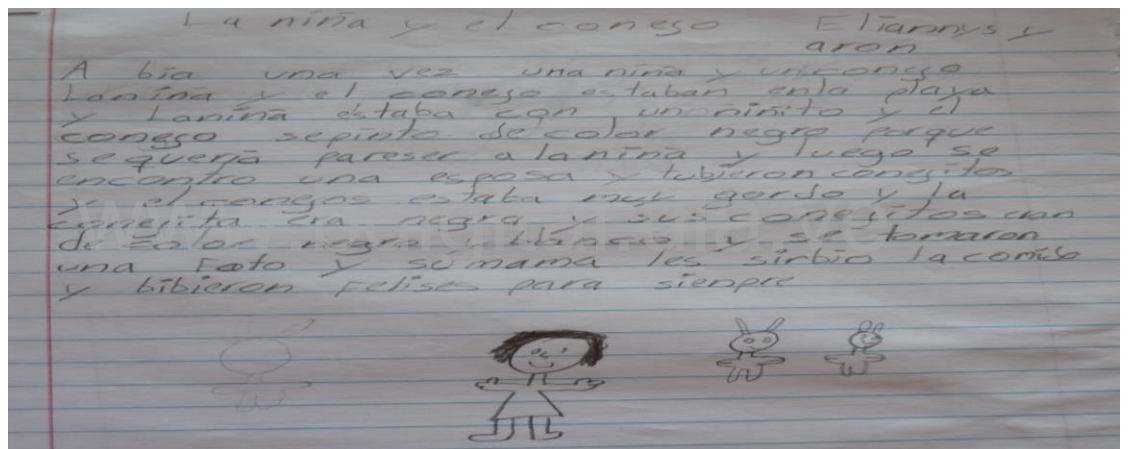 La niña y el conego Eliannys y
aron
A bia una vez una niña y un conego
La niña y el conejo estaban enla playa
y Laniña estaba con un niñito y el
conego sepinto de color negro porque
sequeria pareser a laniña y luego se
encontro una esposa y tubieron conejitos
y el conejos estaba muy gordo y la
conejita era negra y sus conejitos eran
de color negro y blanco y se tomaron
una Foto y sumama les sirbio la comida
y bibieron Felises para sienpre